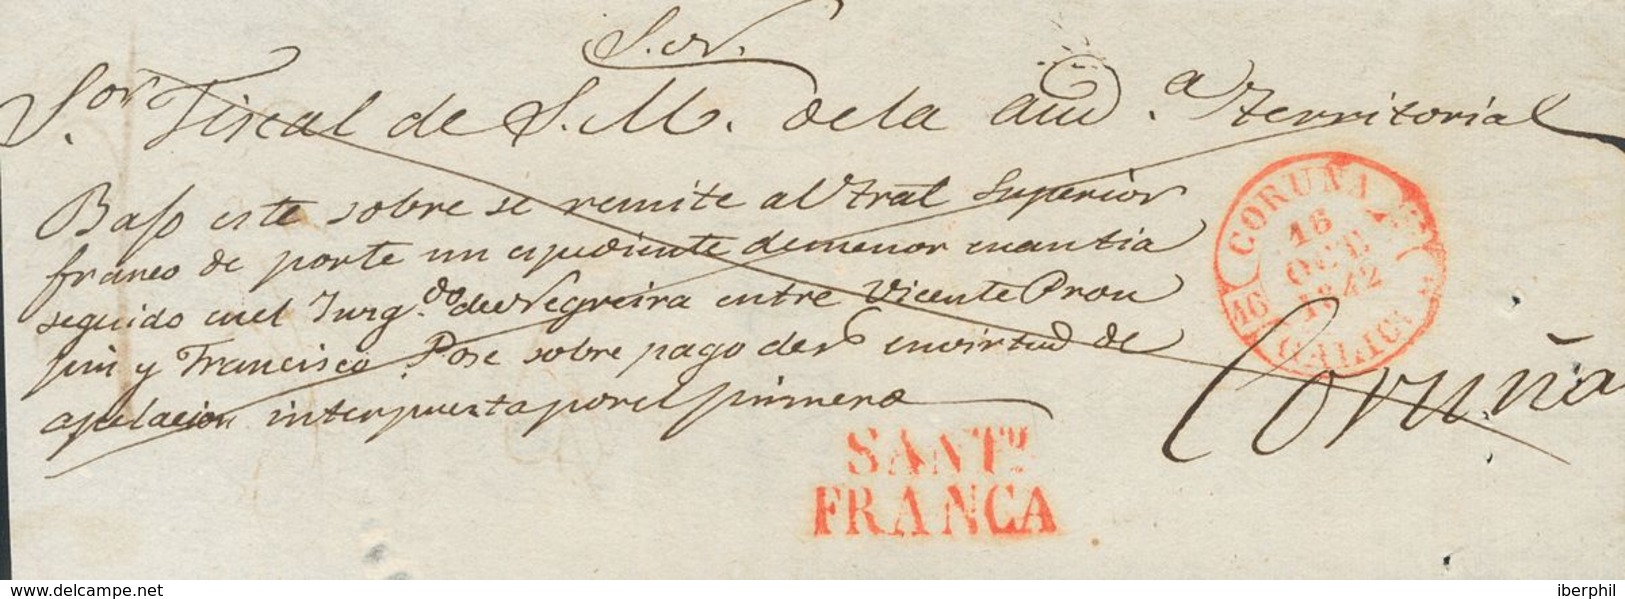 S.or
S.or Fiscal de S.M. de la Aud.a Territorial
Bajo este sobre se remite al Tral Superior
franco de porte un espediente de menor cuantia
seguido en el Juzg.do de Negreira entre Vicente Prou
jin y Francisco Pose sobre pago de rs en virtud de
apelacion interpuesta por el primero
Coruña
CORUÑA
16
1842
16
GALICIA
SANT.O
FRANCA
delcampe.net
iberphil